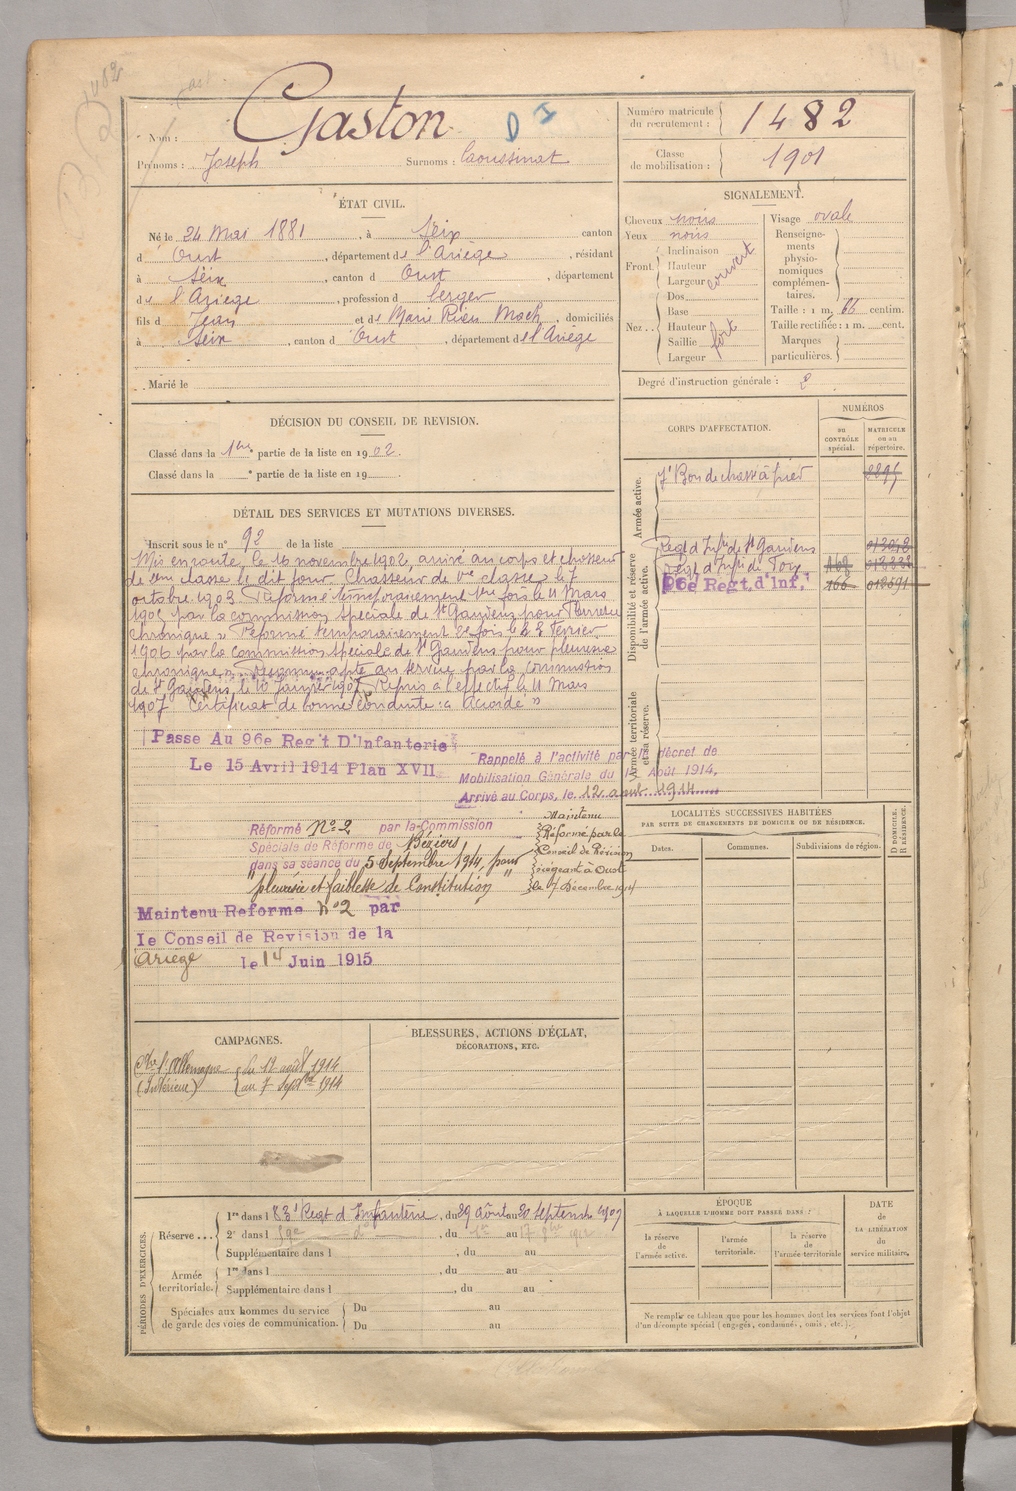 Nom : Gaston
Prénoms : Joseph Surnoms : Caoussinat
Numéro matricule du recrutement : 1482
Classe de mobilisation : 1901
ÉTAT CIVIL.
Né le 24 Mai 1881, à Seix canton
d Oust, département de l'Ariège, résidant
à Seix, canton d Oust, département
de l'Ariège, profession d berger
fils d Jean et de Marie Rieu Moch, domiciliés
à Seix, canton d Oust, département de l'Ariège
Marié le
SIGNALEMENT.
Cheveux noirs
Yeux noirs
Front. Inclinaison
Hauteur
Largeur
couvert
Nez.. Dos
Base
Hauteur
Saillie
Largeur
fort
Visage ovale
Renseigne-
ments
physio-
nomiques
complémen-
taires.
Taille : 1 m. 66 centim.
Taille rectifiée : 1 m. cent.
Marques
particulières.
Degré d'instruction générale : 2
DÉCISION DU CONSEIL DE REVISION.
Classé dans la 1re partie de la liste en 1902.
Classé dans la e partie de la liste en 19
CORPS D'AFFECTATION.
NUMÉROS
DU CONTRÔLE spécial.
MATRICULE ou au répertoire.
Armée active.
7e Bon de chass à pied
Disponibilité et réserve de l'armée active.
Regt d'Infie de St Gaudens
Regt d'Infie de Foix
96e Regt. d'Inf.
Armée territoriale et sa réserve.
DÉTAIL DES SERVICES ET MUTATIONS DIVERSES.
Inscrit sous le n° 92 de la liste
Mis en route, le 16 novembre 1902, arrivé au corps et chasseur
de 2eme classe le dit jour. Chasseur de 1re classe le 7
octobre 1903. Réformé temporairement 1re fois le 11 Mars
1905 par la commission spéciale de St Gaudens pour "Pleurésie
chronique" Réformé temporairement 2e fois le 23 Février
1906 par la commission spéciale de St Gaudens pour pleurésie
chronique. Reconnu apte au service par la commission
de St Gaudens, le 10 Janvier 1907. Repris à l'effectif le 11 Mars
1907 Certificat de bonne conduite : "Accordé"
Passe Au 96e Reg't D'Infanterie
Le 15 Avril 1914 Plan XVII
Rappelé à l'activité par décret de
Mobilisation Générale du 1er Août 1914,
Arrivé au Corps, le 12 août 1914
Réformé N° 2 par la Commission
Spéciale de Réforme de Béziers,
dans sa séance du 5 Septembre 1914, pour
"pleurésie et faiblesse de Constitution"
Maintenu
Réformé par le
Conseil de Révision
siégeant à Oust
le 7 Décembre 1914
Maintenu Reforme n°2 par
le Conseil de Revision de la
Ariège le 14 Juin 1915
LOCALITÉS SUCCESSIVES HABITÉES
PAR SUITE DE CHANGEMENTS DE DOMICILE OU DE RÉSIDENCE.
Dates. Communes. Subdivisions de région. D DOMICILE. R RÉSIDENCE.
CAMPAGNES.
Ctre l'Allemagne du 12 août 1914
(Intérieur) au 7 Septbre 1914
BLESSURES, ACTIONS D'ÉCLAT,
DÉCORATIONS, ETC.
PÉRIODES D'EXERCICES.
Réserve... 1re dans l 83e Regt d'Infanterie, du 29 août au 20 septembre 1907
2e dans l, du 1er au 17 9bre 1912
Supplémentaire dans l, du au
Armée territoriale. 1re dans l, du au
Supplémentaire dans l, du au
Spéciales aux hommes du service
de garde des voies de communication. Du au
Du au
ÉPOQUE
À LAQUELLE L'HOMME DOIT PASSER DANS :
la réserve de l'armée active.
l'armée territoriale.
la réserve de l'armée territoriale
DATE de LA LIBÉRATION du service militaire.
Ne remplir ce tableau que pour les hommes dont les services font l'objet
d'un décompte spécial (engagés, condamnés, omis, etc.).